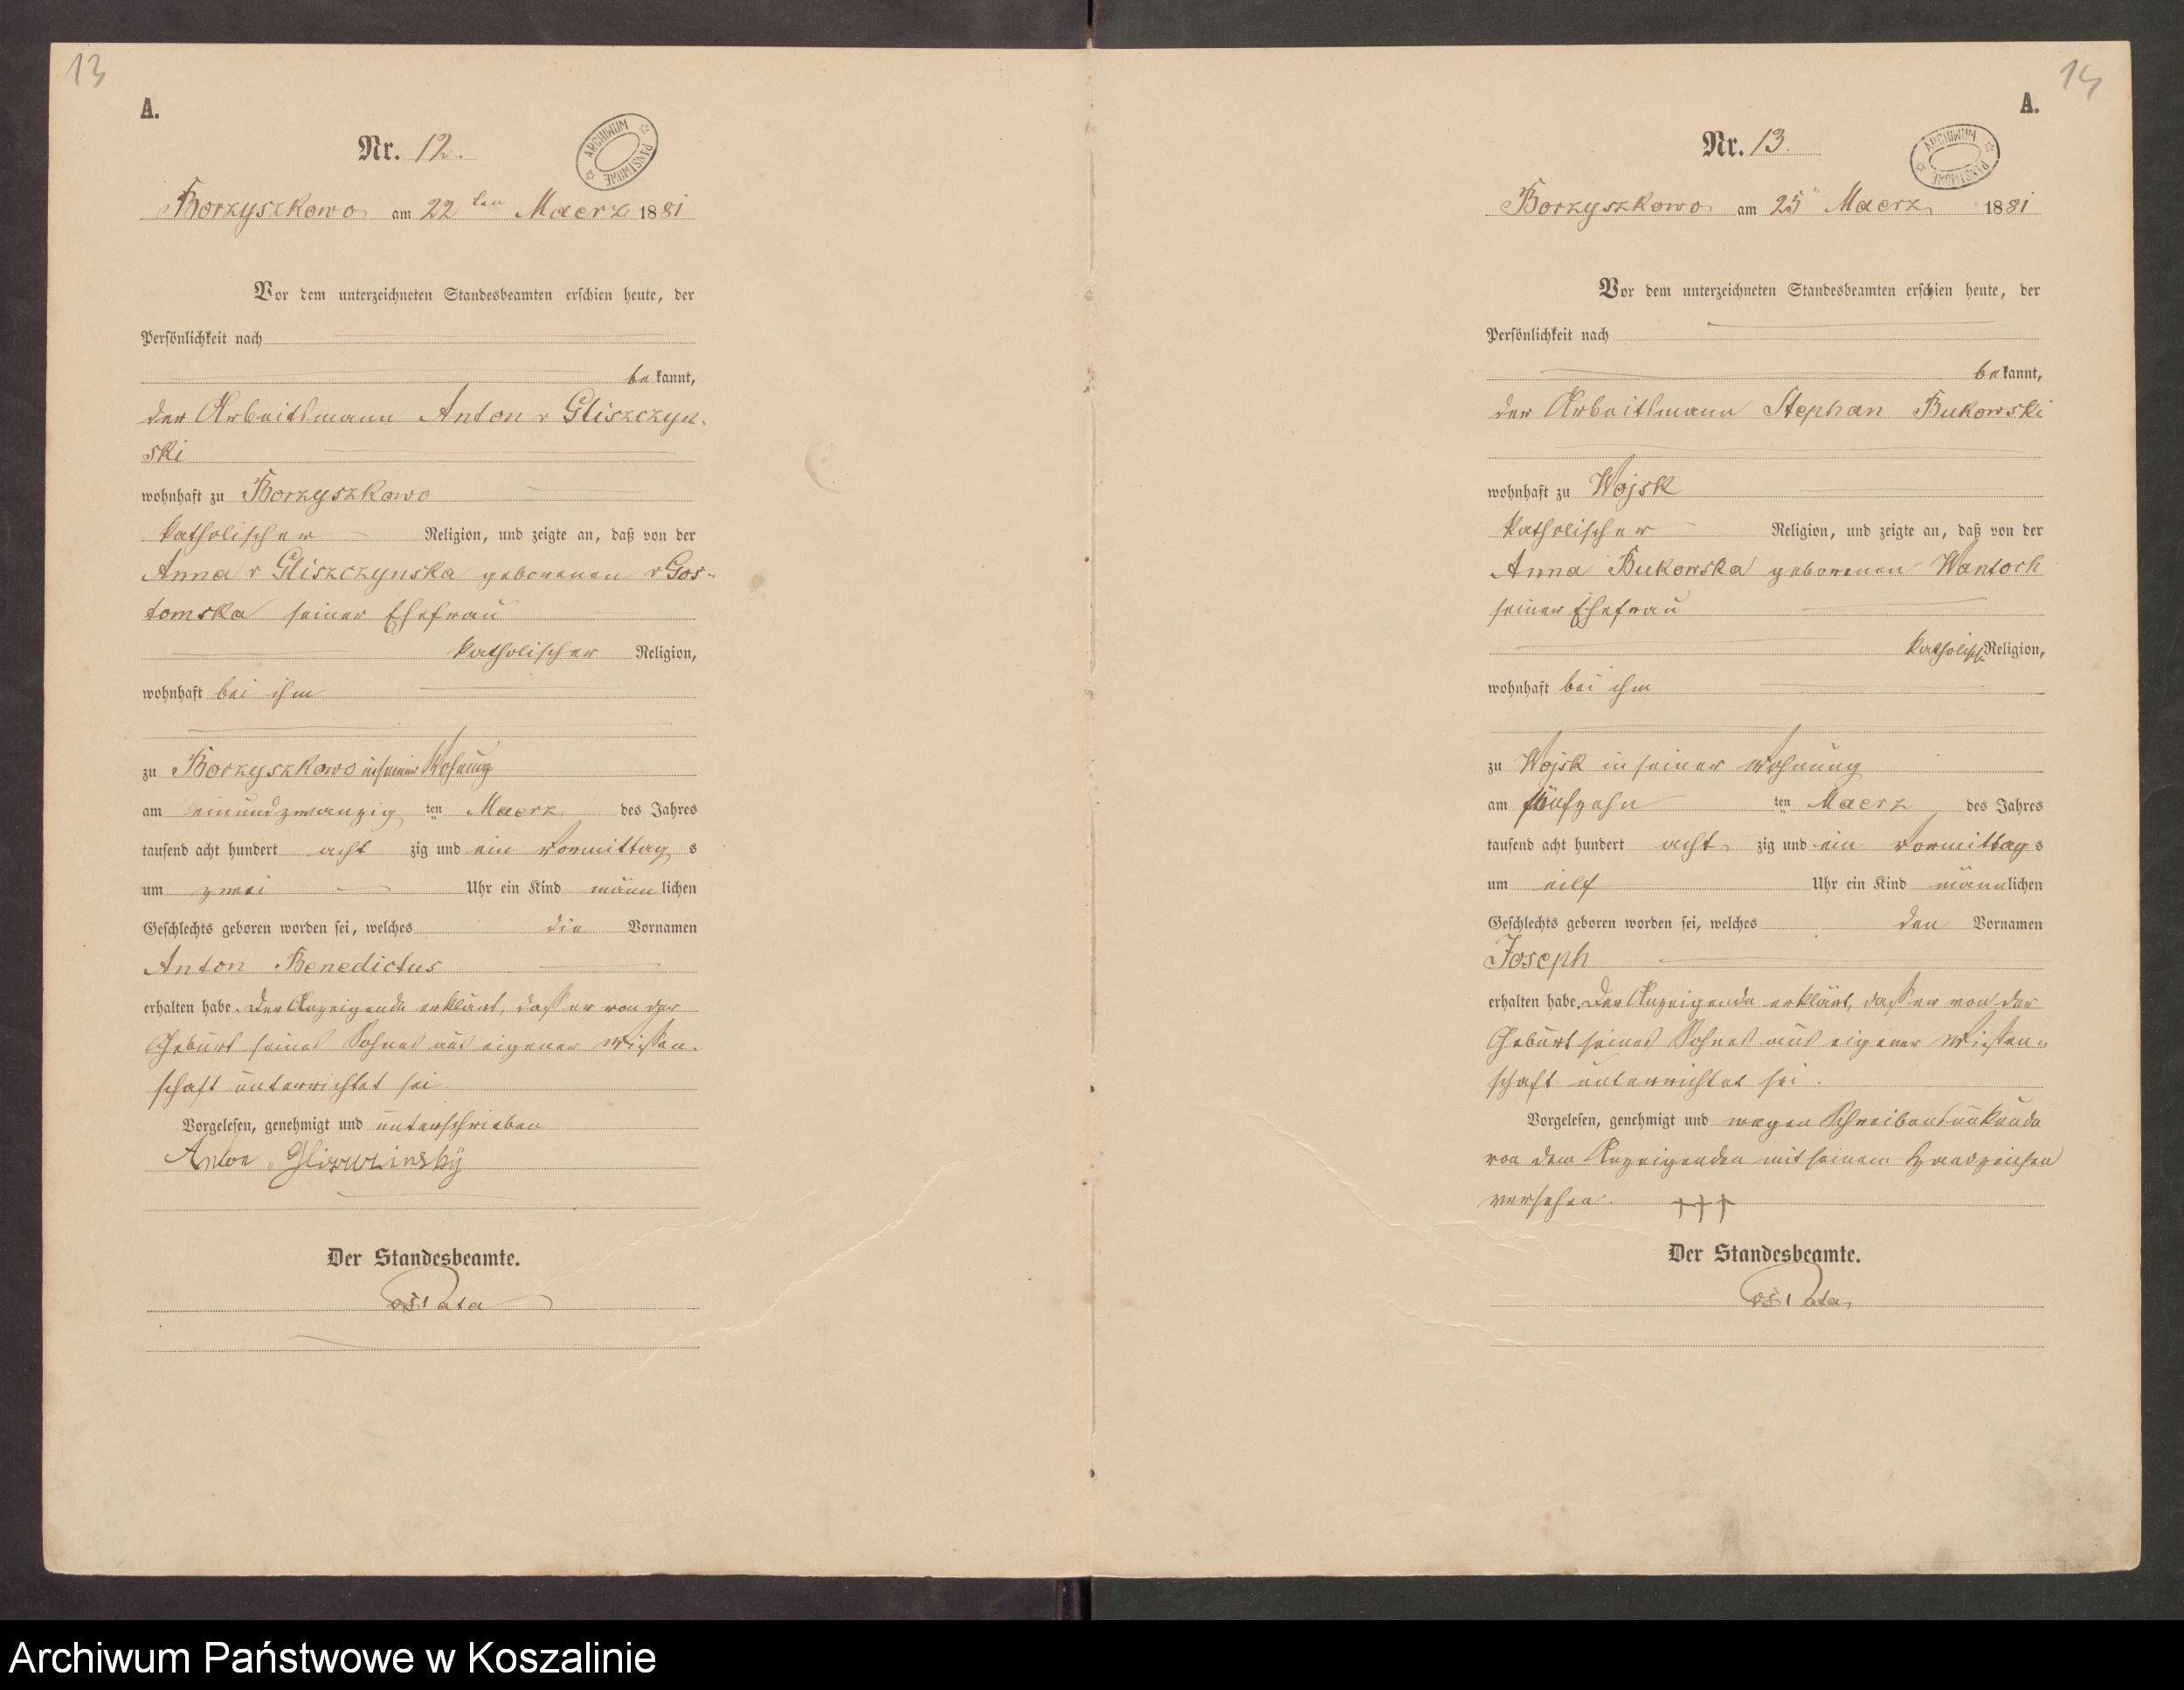 13
A.
Nr. 12.
ARCHIWUM PAŃSTWOWE
Borzyszkowo am 22ten Maerz 1881
Vor dem unterzeichneten Standesbeamten erschien heute, der
Persönlichkeit nach
bekannt,
der Arbeitsmann Anton v Gliszczyn-
ski
wohnhaft zu Borzyszkowo
katholischer Religion, und zeigte an, daß von der
Anna v Gliszczynska geborenen v Gos-
tomska seiner Ehefrau
katholischer Religion,
wohnhaft bei ihm
zu Borzyszkowo in seiner Wohnung
am einundzwanzig ten Maerz des Jahres
tausend acht hundert acht zig und ein Vormittag s
um zwei Uhr ein Kind männlichen
Geschlechts geboren worden sei, welches die Vornamen
Anton Benedictus
erhalten habe. Der Anzeigende erklärt, daß er von der
Geburt seines Sohnes aus eigener Wissen-
schaft unterrichtet sei.
Vorgelesen, genehmigt und unterschrieben
Anton
Der Standesbeamte.
14
A.
Nr. 13.
ARCHIWUM PAŃSTWOWE
Borzyszkowo am 25" Maerz 1881
Vor dem unterzeichneten Standesbeamten erschien heute, der
Persönlichkeit nach
bekannt,
der Arbeitsmann Stephan Bukowski
wohnhaft zu Wojsk
katholischer Religion, und zeigte an, daß von der
Anna Bukowska geborenen Wantoch
seiner Ehefrau
katholisch Religion,
wohnhaft bei ihm
zu Wojsk in seiner Wohnung
am fünfzehn ten Maerz des Jahres
tausend acht hundert acht zig und ein Vormittag s
um eilf Uhr ein Kind männlichen
Geschlechts geboren worden sei, welches den Vornamen
Joseph
erhalten habe. Der Anzeigende erklärt, daß er von der
Geburt seines Sohnes aus eigener Wissen-
schaft unterrichtet sei.
Vorgelesen, genehmigt und wegen Schreibensunkunde
von dem Anzeigenden mit seinem Handzeichen
versehen. +++
Der Standesbeamte.
Archiwum Państwowe w Koszalinie